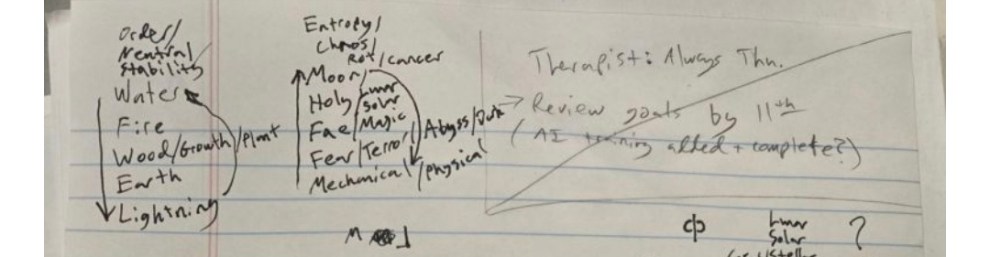 Order/
Neutral
Stability
Water
Fire
Wood/Growth/Plant
Earth
Lightning
Entropy/
Chaos/
Rot/cancer
Moon/
Holy/Lunar
Solar
Fae/Magic
Fear/Terror/Abyss/Dark
Mechanical/physical
Therapist: Always Thu.
→ Review goals by 11th
(AI training added + complete?)
W
Lunar
Solar
?